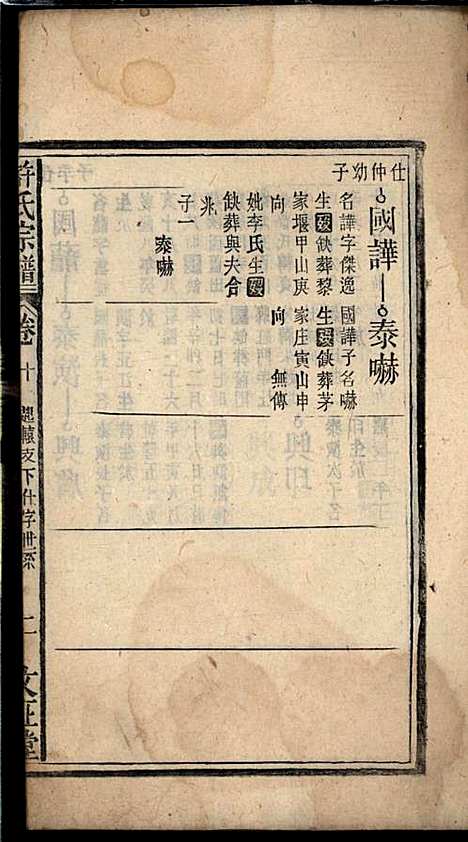 仕仲幼子
國譁
泰嚇
名譁字傑逸
生歿缺葬黎
家堰甲山庚
向
妣李氏生歿
缺葬與夫合
兆
子一
泰嚇
國譁子名嚇
生歿缺葬茅
家庄寅山申
向 無傳
許氏宗譜
卷十
支下仕字世系
二
文正堂